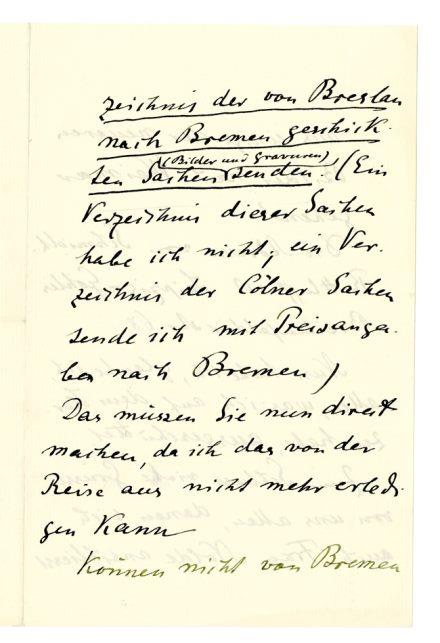 zeichnis der von Breslau
nach Bremen geschick-
(Bilder und Gravuren)
ten Sachen senden. (Ein
Verzeichnis dieser Sachen
habe ich nicht, ein Ver-
zeichnis der Cölner Sachen
sende ich mit Preisanga-
ben nach Bremen)
Das müssen Sie nun direkt
machen, da ich das von der
Reise aus nicht mehr erledi-
gen kann
Können nicht von Bremen